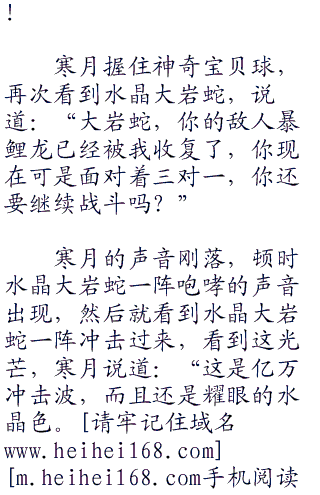 ！
寒月握住神奇宝贝球，
再次看到水晶大岩蛇，说
道：“大岩蛇，你的敌人暴
鲤龙已经被我收复了，你现
在可是面对着三对一，你还
要继续战斗吗？”
寒月的声音刚落，顿时
水晶大岩蛇一阵咆哮的声音
出现，然后就看到水晶大岩
蛇一阵冲击过来，看到这光
芒，寒月说道：“这是亿万
冲击波，而且还是耀眼的水
晶色。[请牢记住域名
www.heihei168.com]
[m.heihei168.com手机阅读